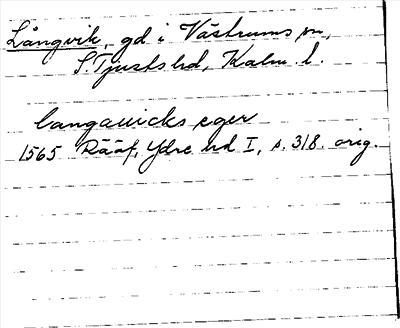 Långvik, gd i Västrums sn,
S. Tjusts hd, Kalm. l.
langauicks eger
1565 Rääf, Ydre hd I, s. 318. orig.